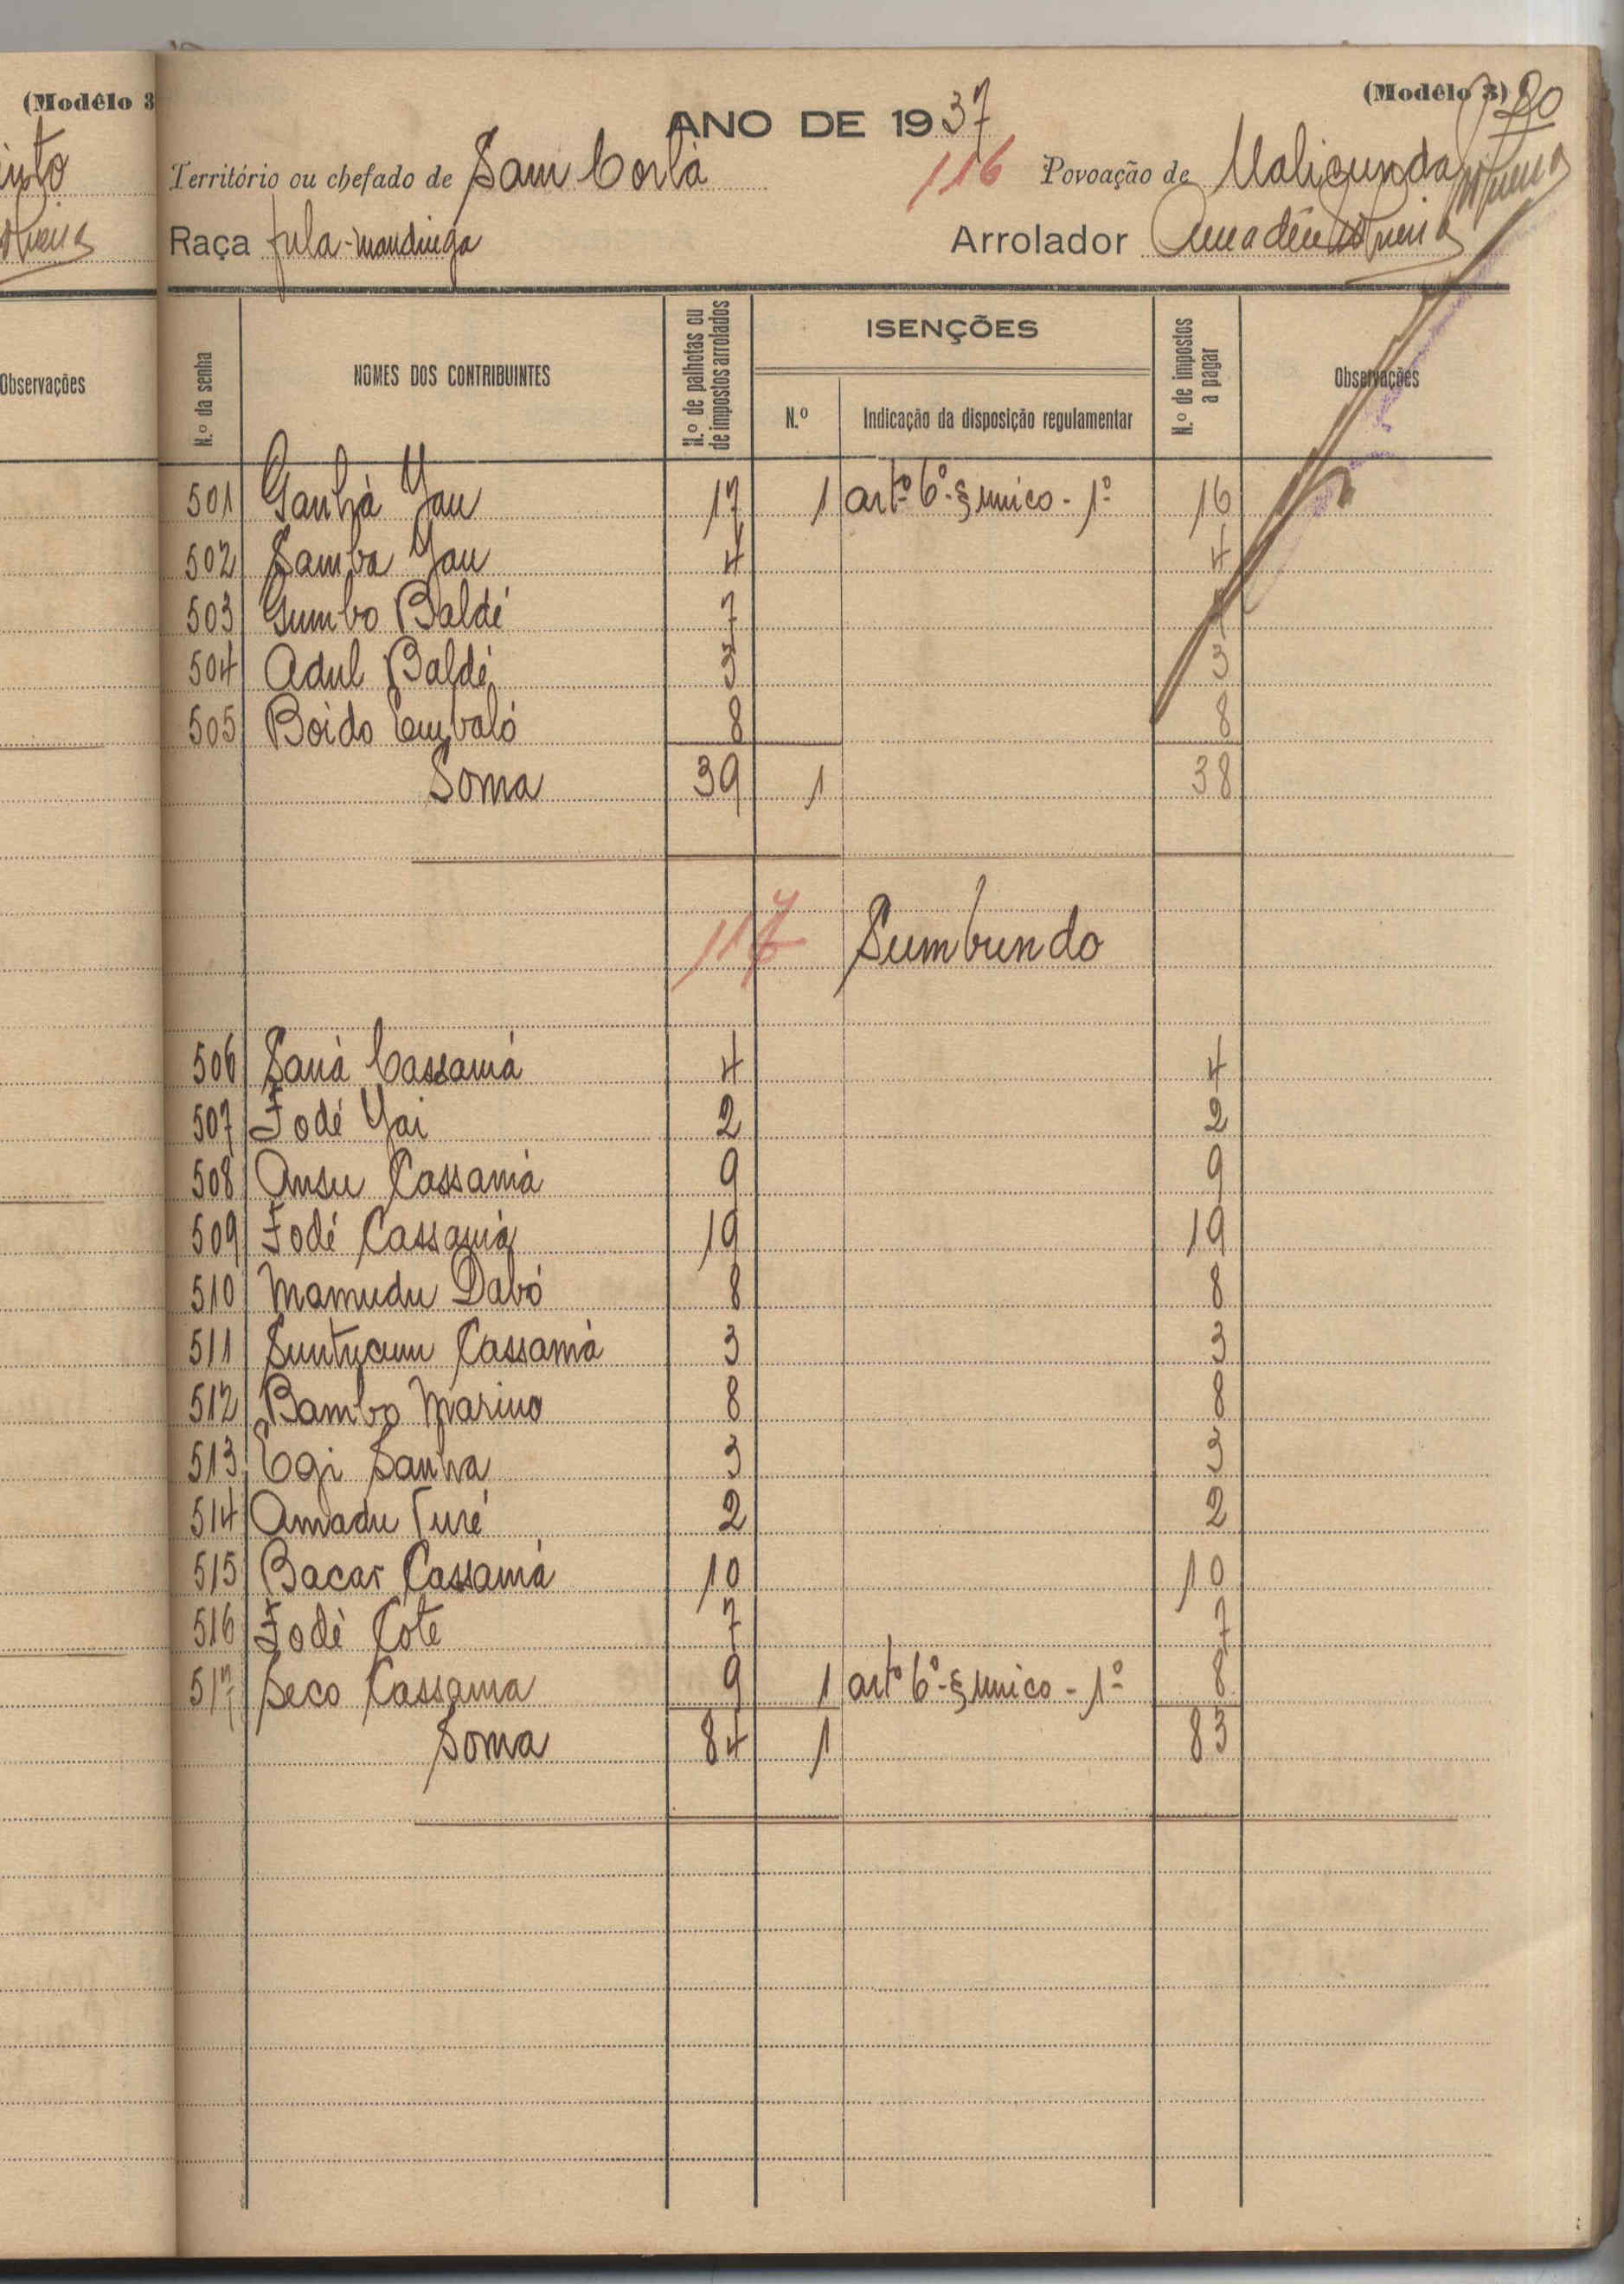 (Modêlo 3
Observações
(Modêlo 3) 20
ANO DE 1937
Território ou chefado de Sam Corlà 116 Povoação de Malicunda
Raça fula-mandinga Arrolador Amadeu
N.º da senha NOMES DOS CONTRIBUINTES N.º de palhotas ou de impostos arrolados ISENÇÕES N.º de impostos a pagar Observações
N.º Indicação da disposição regulamentar
501 Ganhà Jau 17 1 artº 6º-§ unico - 1º 16
502 Samba Jau 4 4
503 Gumbo Baldé 7 7
504 Adul Baldé 3 3
505 Boido Embaló 8 8
Soma 39 1 38
117 Sumbundo
506 Saná Cassamá 4 4
507 Fodé Jai 2 2
508 Ansu Cassamá 9 9
509 Fodé Cassamá 19 19
510 Mamudu Dabó 8 8
511 Suntucum Cassamà 3 3
512 Bambo Marino 8 8
513 Egi Sanha 3 3
514 Amadu Turé 2 2
515 Bacar Cassamá 10 10
516 Fodè Cote 7 7
517 Seco Cassama 9 1 artº 6º-§ unico - 1º 8
Soma 84 1 83